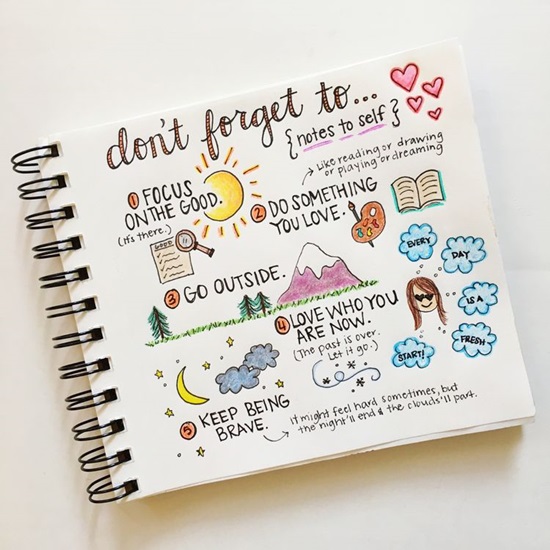 don't forget to...
{notes to self}
① FOCUS
ON THE GOOD.
(It's there.)
GOOD
② DO SOMETHING
YOU LOVE.
Like reading or drawing
or playing or dreaming
③ GO OUTSIDE.
④ LOVE WHO YOU
ARE NOW.
(The past is over.
Let it go.)
EVERY
DAY
IS A
FRESH
START!
⑤ KEEP BEING
BRAVE.
it might feel hard sometimes, but
the night'll end & the clouds'll part.